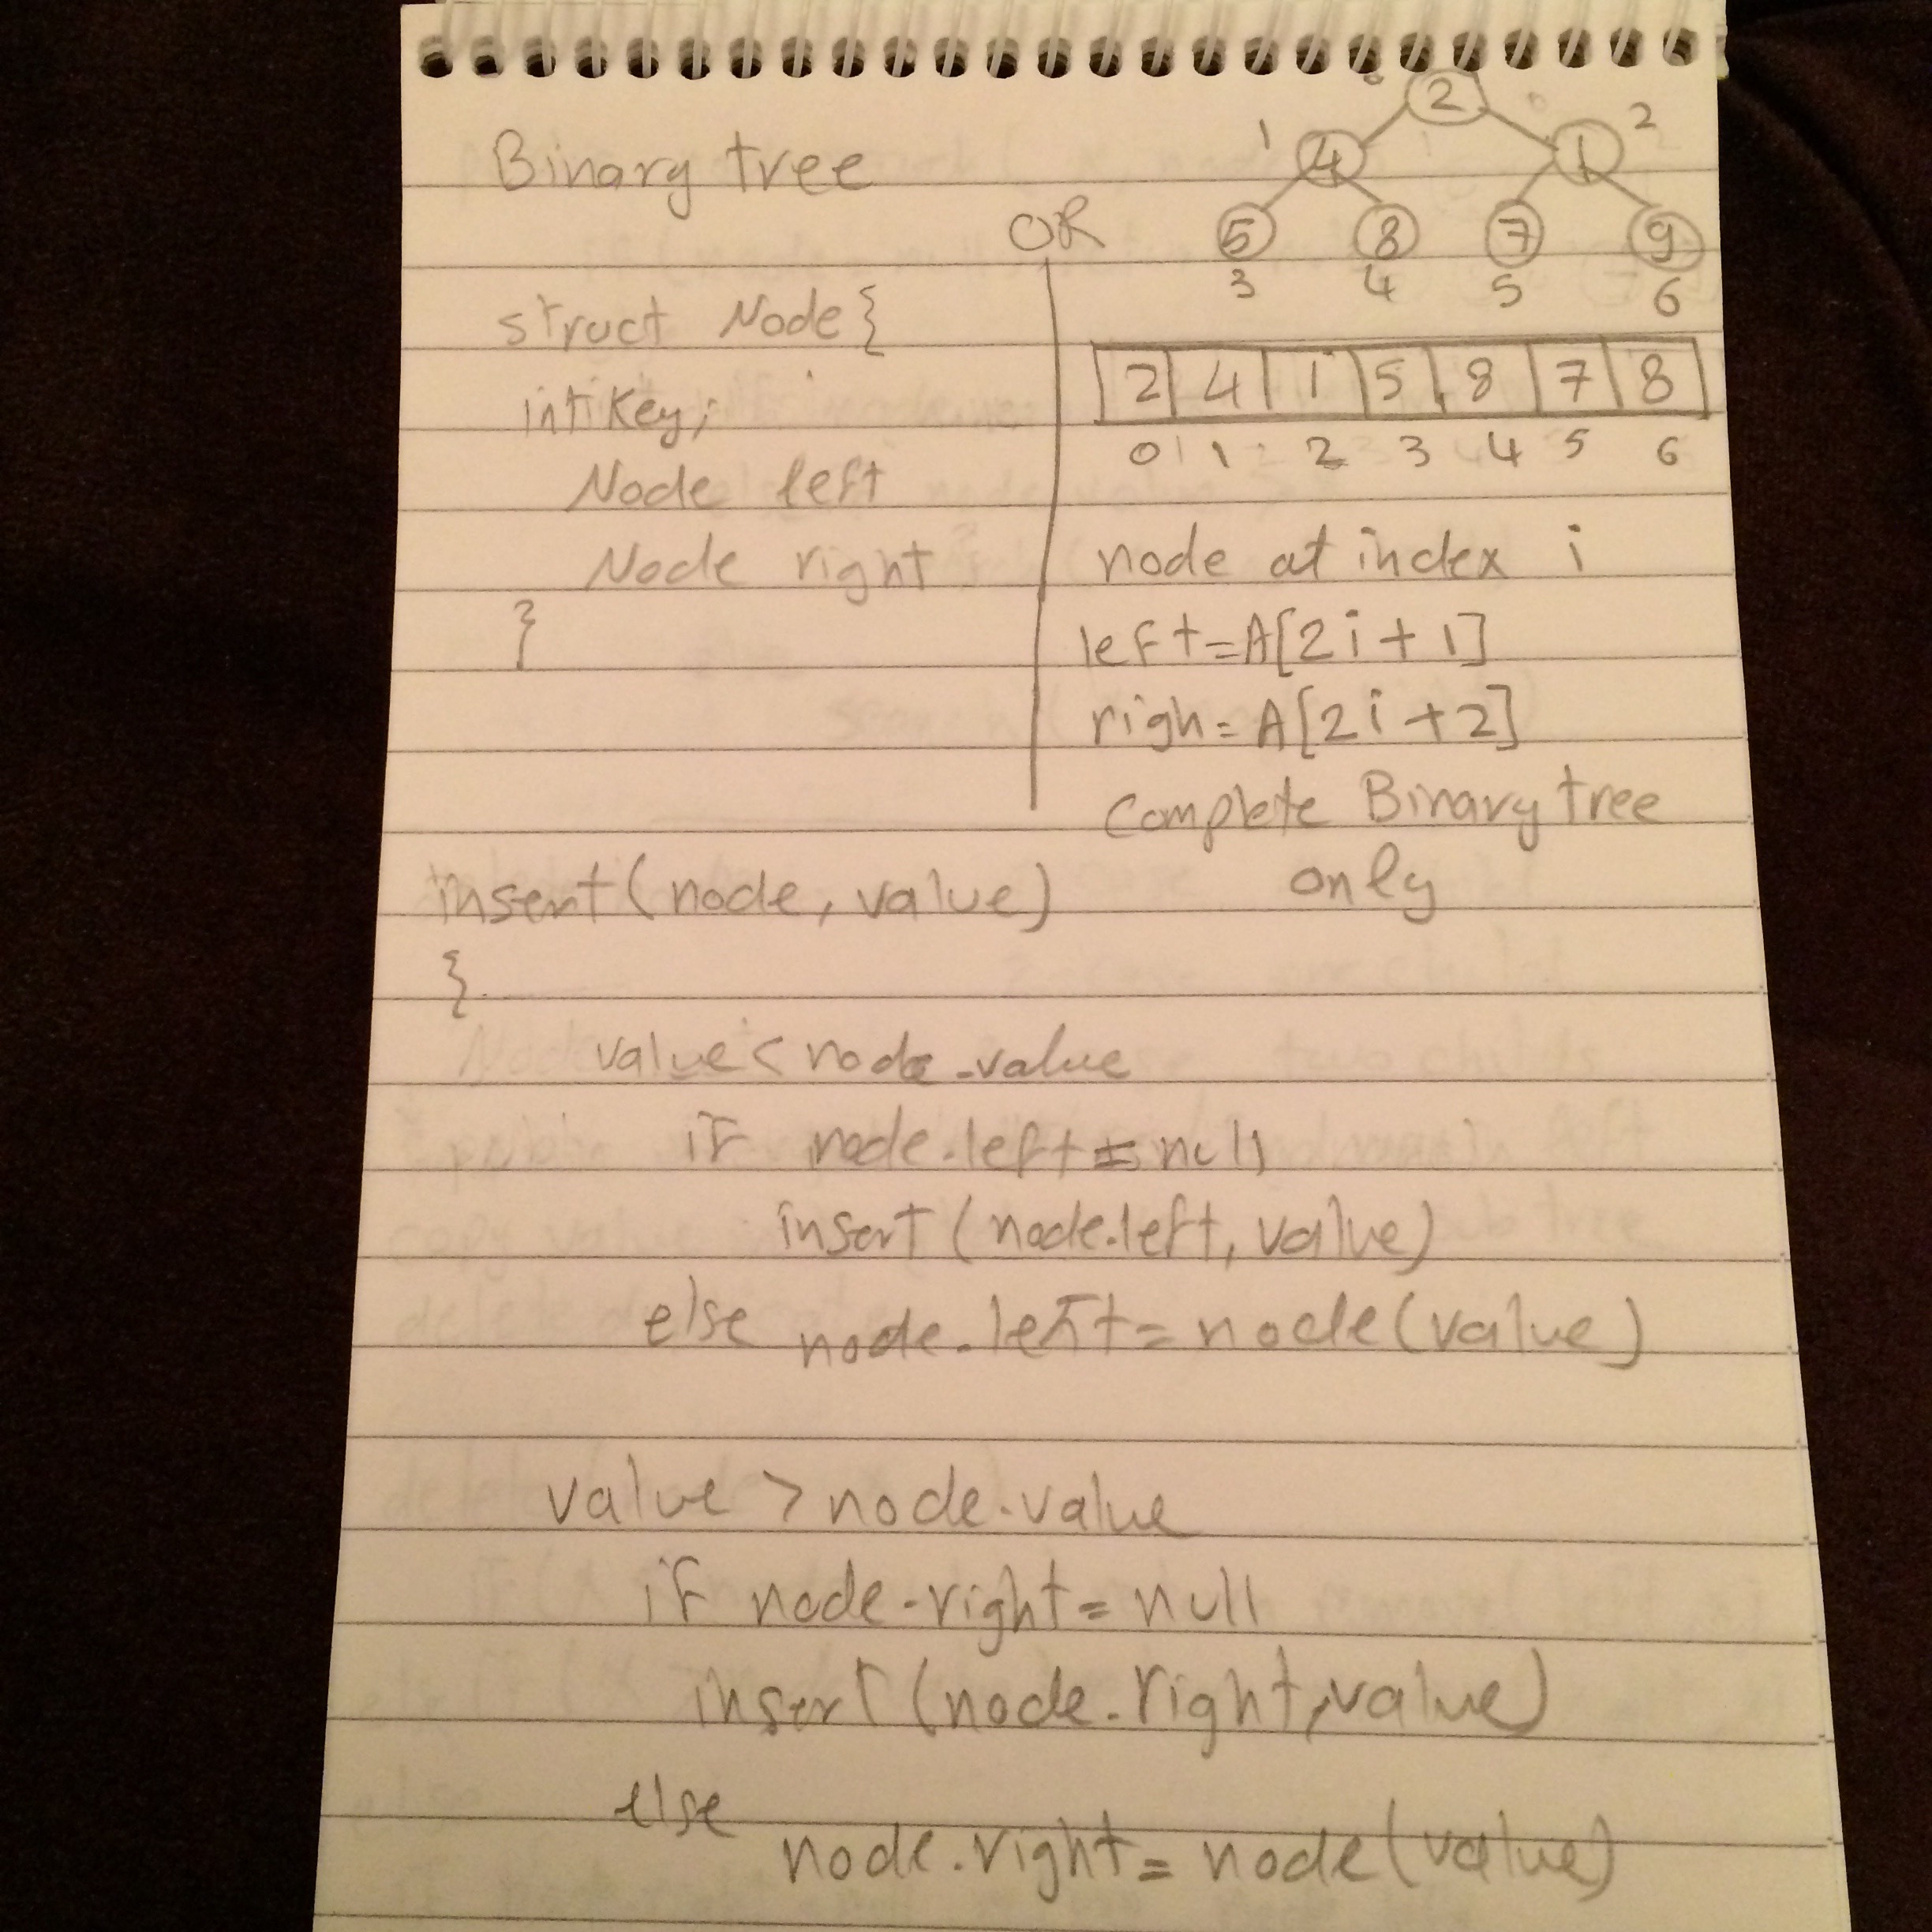 Binary tree
struct Node {
int Key;
Node left
Node right
}
OR
0
2
1
4
1
2
5
8
7
9
3
4
5
6
2 4 1 5 8 7 8
0 1 2 3 4 5 6
node at index i
left=A[2i+1]
righ=A[2i+2]
Complete Binary tree
only
insert(node, value)
{
value < node.value
if node.left = null
insert (node.left, value)
else node.left = node(value)
value > node.value
if node.right = null
insert (node.right, value)
else
node.right = node(value)